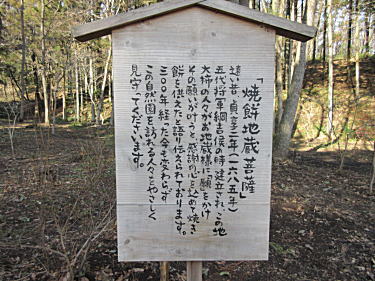 「焼餅地蔵菩薩」
遠い昔、貞享二年(一六八五年)
五代将軍綱吉侯の時建立され、この地
大柿の人々がお地蔵様に願をかけ
その願いが叶うと感謝の心を込めて焼き
餅を供えたと語り伝えられております。
三〇〇年経った今も変わらず
この自然園を訪れる人々をやさしく
見守ってくださいます。